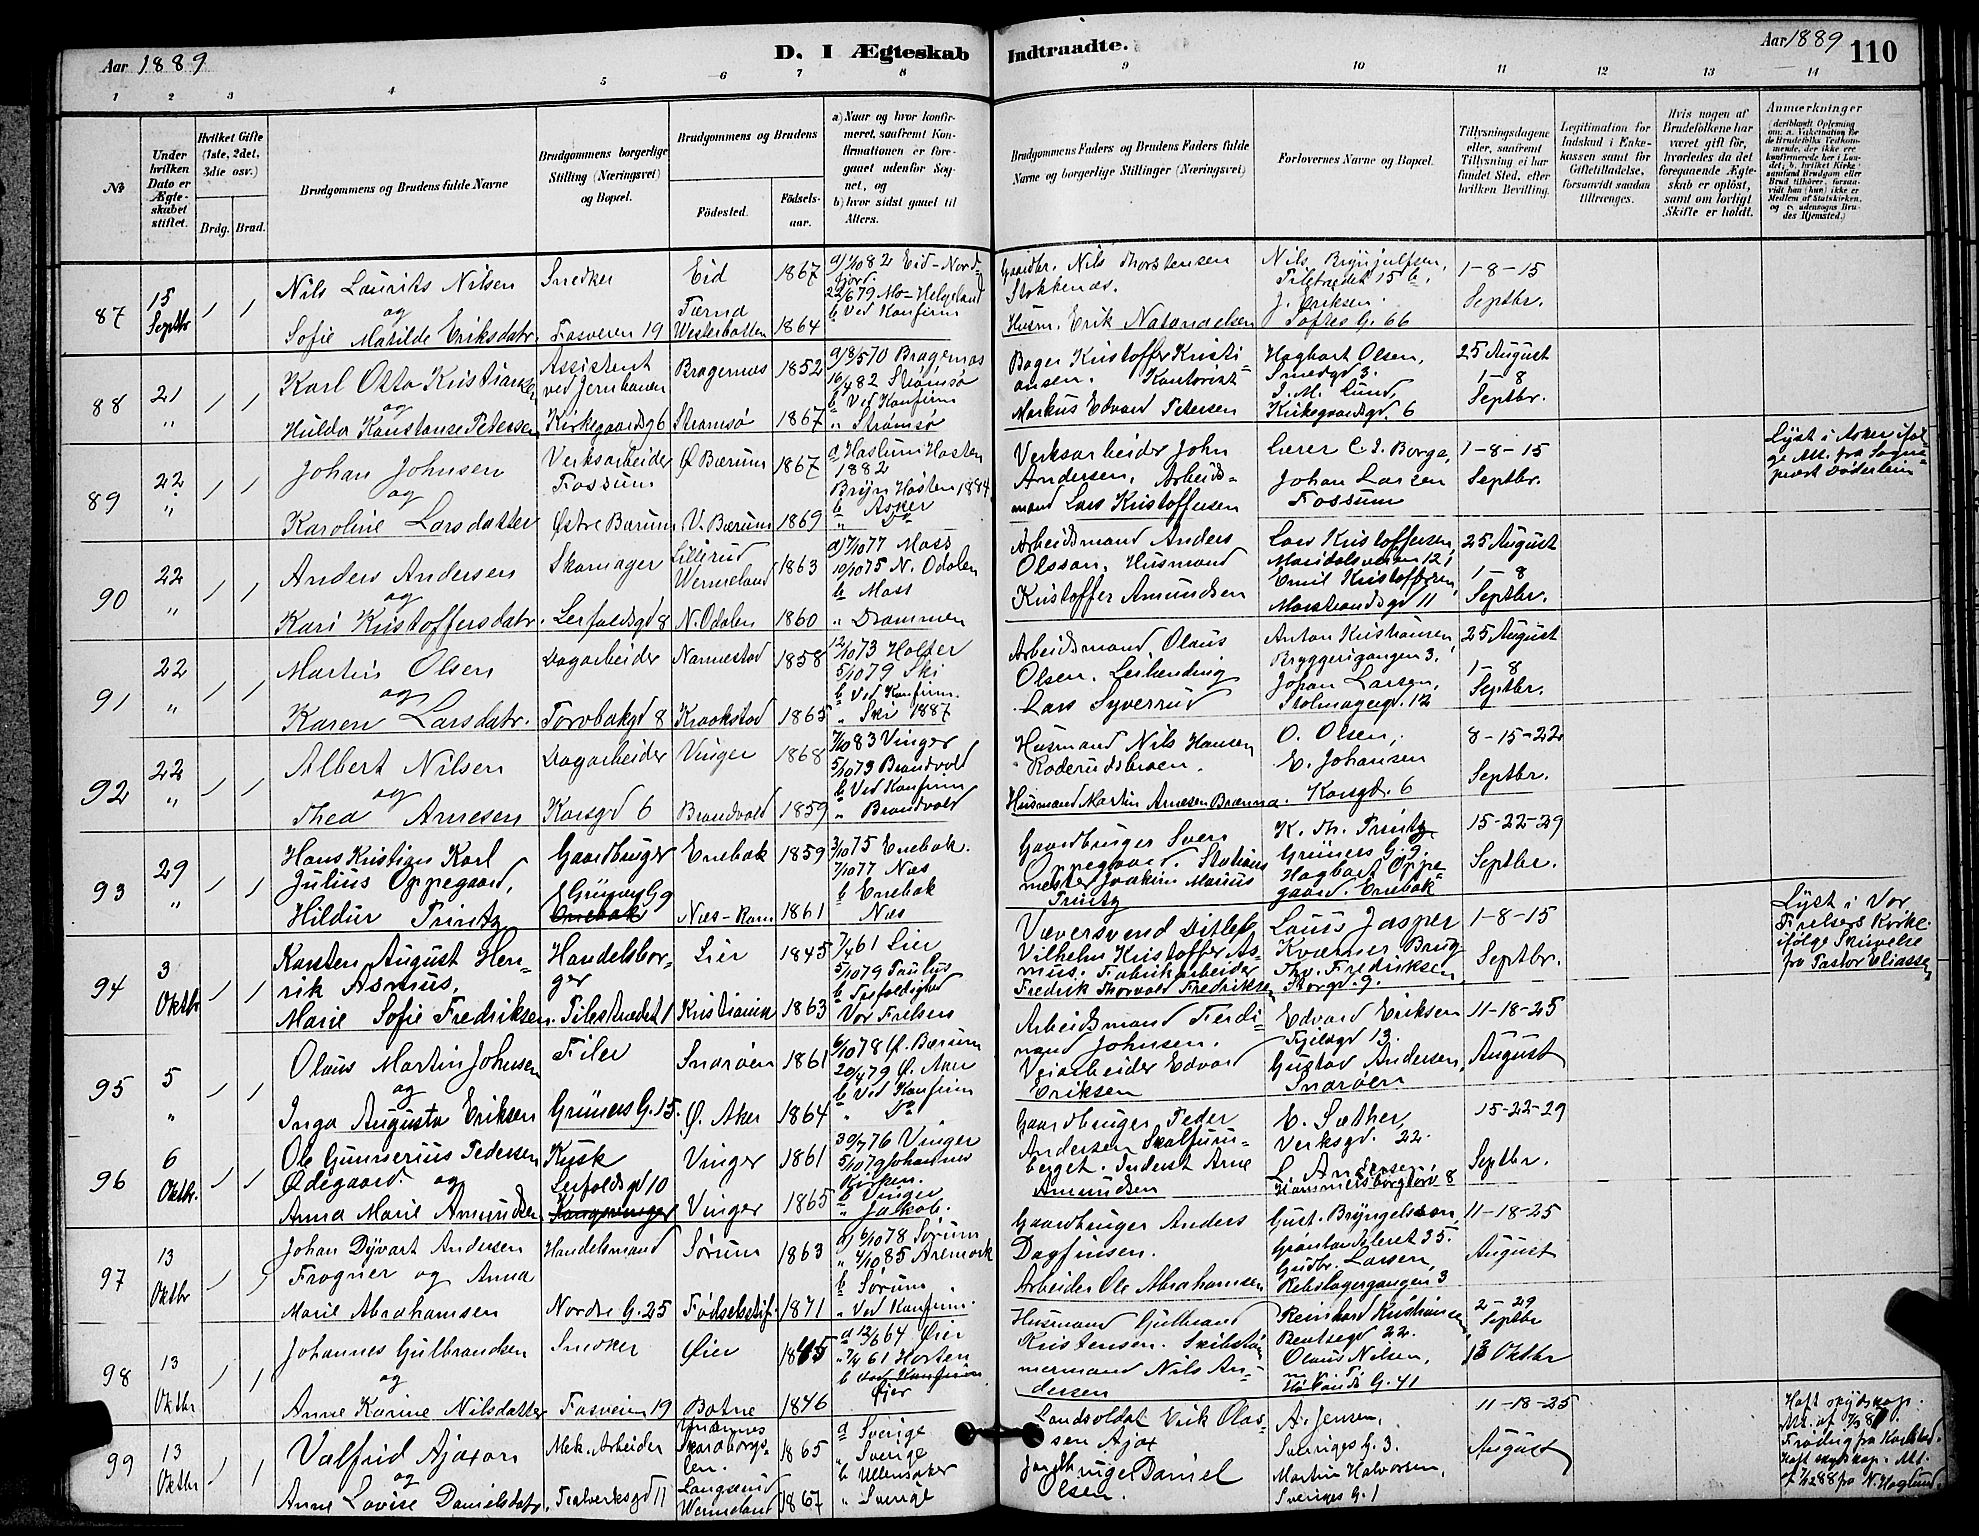 Aar 1889
D. I Ægteskab
Indtraadte.
Aar 1889
110
1 2 3 4 5 6 7 8 9 10 11 12 13 14
No
Under hvilken Dato er Ægteskabet stiftet.
Hvilket Gifte (1ste, 2det, 3die osv.)
Brdg. Brud.
Brudgommens og Brudens fulde Navne
Brudgommens borgerlige Stilling (Næringsvei) og Bopæl.
Brudgommens og Brudens
Fødested.
Fødselsaar.
a) Naar og hvor konfirmeret, saafremt Konfirmationen er foregaaet udenfor Sognet, og
b) hvor sidst gaaet til Alters.
Brudgommens Faders og Brudens Faders fulde Navne og borgerlige Stillinger (Næringsvei)
Forlovernes Navne og Bopæl.
Tillysningsdagene eller, saafremt Tillysning ei har fundet Sted, efter hvilken Bevilling.
Legitimation for Indskud i Enkekassen samt for Giftetilladelse, forsaavidt saadan tiltrænges.
Hvis nogen af Brudefolkene har været gift før, hvorledes da det foregaaende Ægteskab er opløst, samt om lovligt Skifte er holdt.
Anmærkninger
87 15 Septbr
Nils Laurits Nilsen
og
Sofie Matilde Eriksdatr.
Snedker
Fosveien 19
Eid 1867
Tærna Westerbotten 1864
a) 1/10 82 Eid - Nordfjord
22/6 79 Mo - Helgeland
b Ved Konfirm
Gaardbr. Nils Thorstensen Stokkenæs.
Husm. Erik Natanaelsen
Nils Brynjulfsen, Pilestrædet 15 b,
J. Eriksen. Toftes G. 66
1-8-15
Septbr.
88 21 "
Karl Otto Kristiansen
og
Hulda Konstanse Petersen
Assistent ved Jernbanen
Kirkegaardsg 6
Bragernæs 1852
Strømsø 1867
a 13/5 70 Bragernæs
16/4 82 Strømsø
b Ved Konfirm
" Strømsø
Bager Kristoffer Kristiansen. Kontorist
Markus Edvard Petersen
Hagbart Olsen, Smedgd 3.
J. M. Lund, Kirkegaardsgd. 6
25 August
1-8
Septbr.
89 22 "
Johan Johnsen
og
Karoline Larsdatter
Verksarbeider Fossum
Østre Bærum
Ø Bærum 1867
V. Bærum 1869
a Haslum Høsten 1882
Bryn Høsten 1884
b Asker
" Do
Verksarbeider John Andersen, Arbeidsmand Lars Kristoffersen
Lærer C. J. Borge,
Johan Larsen
Fossum
1-8-15
Septbr.
Lyst i Asker ifølge Att. fra Sognepræst Døderlein
90 22 "
Anders Andersen
og
Kari Kristoffersdatr.
Skomager
Lerfaldsgd 8
Sillerud Wermeland 1863
N. Odalen 1860
a) 7/10 77 Moss
10/10 75 N. Odalen
b Moss
" Drammen
Arbeidsmand Anders Olsson, Husmand
Kristoffer Amundsen
Lars Kristoffersen, Maridalsveien 121
Emil Kristoffersen, Markveiensgd 11
25 August
1-8
Septbr.
91 22 "
Martin Olsen
og
Karen Larsdatr.
Dagarbeider
Torvbakgd 8
Nannestad 1858
Kraakstad 1865
12/10 73 Holter
5/10 79 Ski
b Ved Konfirm.
" Ski 1887
Arbeidsmand, Olaus Olsen. Leilending
Lars Syverrud
Anton Kristiansen, Bryggerigangen 3.
Johan Larsen, Stolmagergd. 12
25 August
1-8
Septbr.
92 22 "
Albert Nilsen
og
Thea Arnesen
Dagarbeider
Korsgd 6
Vinger 1868
Brandvold 1859
7/10 83 Vinger
5/10 73 Brandvold
b Ved Konfirm
" Brandvold
Husmand Nils Hansen Roderudsbraaten.
Husmand Martin Arnesen Brænna.
O. Olsen,
E. Johansen
Korsgd. 6
8-15-22
Septbr.
93 29 "
Hans Kristian Karl Julius Oppegaard,
Hildur Printz
Gaardbruger
Grüners G 9
Enebak
Enebak 1859
Næs - Rom 1861
3/10 75 Enebak.
7/10 77 Næs
b Enebak
Næs
Gaardbruger Sven Oppegaard. Stationsmester Joakim Marius Printz
K. Th. Printz Grüners G. 9.
Hagbart Oppegaard. Enebak
15-22-29
Septbr.
94 3 Oktbr
Karsten August Henrik Asmus,
Marie Sofie Fredriksen.
Handelsborger
Pilestrædet 1
Lier 1845
Kristiania 1863
7/4 61 Lier
5/10 79 Paulus
b Trefoldighed
Vor Frelsers
Væversvend Ditlef Vilhelm Kristoffer Asmus. Fabrikarbeider Fredrik Thorvald Fredriksen
Lauis Jasper Kværner Brug
Thv. Fredriksen, Storgd. 9.
1-8-15
Septbr.
Lyst i Vor Frelsers Kirke ifølge Skrivelse fra Pastor Eliassen
95 5 "
Olaus Martin Johnsen
og
Inga Augusta Eriksen
Filer
Grüners G. 15.
Snarøen 1861
Ø. Aker 1864
6/10 78 Ø. Bærum
20/4 79 Ø. Aker
b Ved Konfirm
" Do
Arbeidsmand Ferdinand Johnsen.
Veiarbeider Edvard Eriksen
Edvard Eriksen Fjeldgd 13.
Gustav Andersen, Snarøen
11-18-25
August
96 6 Oktbr.
Ole Gunnerius Pedersen Ødegaard. og
Anna Marie Amundsen
Kusk
Lerfaldsgd 10
Kongsvinger
Vinger 1861
Vinger 1865
30/7 76 Vinger
5/10 79 Johannes Kirken.
b Vinger
" Jakob.
Gaardbruger Peder Andersen Skalfurubergel. Inderst Arne Amundsen
E. Sæther, Verksgd. 22.
L. Andersen, Hammersborgtorv 8
15-22-29
Septbr.
97 13 Oktbr
Johan Dyvart Andersen Frogner og Anna
Marie Abrahamsen
Handelsmand
Nordre G. 25
Sørum 1863
Fødselsstif. 1871
a) 6/10 78 Sørum
" 4/10 85 Aremark
b Sørum
" Ved Konfirm.
Gaardbruger Anders Dagfinsen.
Arbeider Ole Abrahamsen
Gust. Bryngelsson, Grønlandsleret 35.
Gudbr. Larsen, Rebslagergangen 3
11-18-25
August
98 13 Oktbr
Johannes Gulbrandsen
og
Anne Karine Nilsdatter
Snedker
Fosveien 19
Øier 1845
Botne 1846
a 12/6 64 Øier
" 7/4 61 Horten
b Ved Konfirm.
Øjer
Husmand Gulbrand Kristensen. Skibstømmermand Nils Andersen
Reinhard Kristiansen, Bentsegd 22.
Olaus Nilsen, Haakons G. 41
2-29
Septbr
13 Oktbr
99 13 Oktbr
Valfrid Ajaxon
og
Anne Lovise Danielsdatr.
Mek. Arbeider
Trælverksgd 11
Skaraborgslen. 1865
Langserud Wermeland 1867
a Sverige
" Sverige
b Ullensaker
" Sverige
Landsoldat Erik Olassen Ajax
Jordbruger Daniel Olsen.
A. Jensen, Sveriges G. 3.
Martin Halvorsen, Sveriges G. 1
11-18-25
August